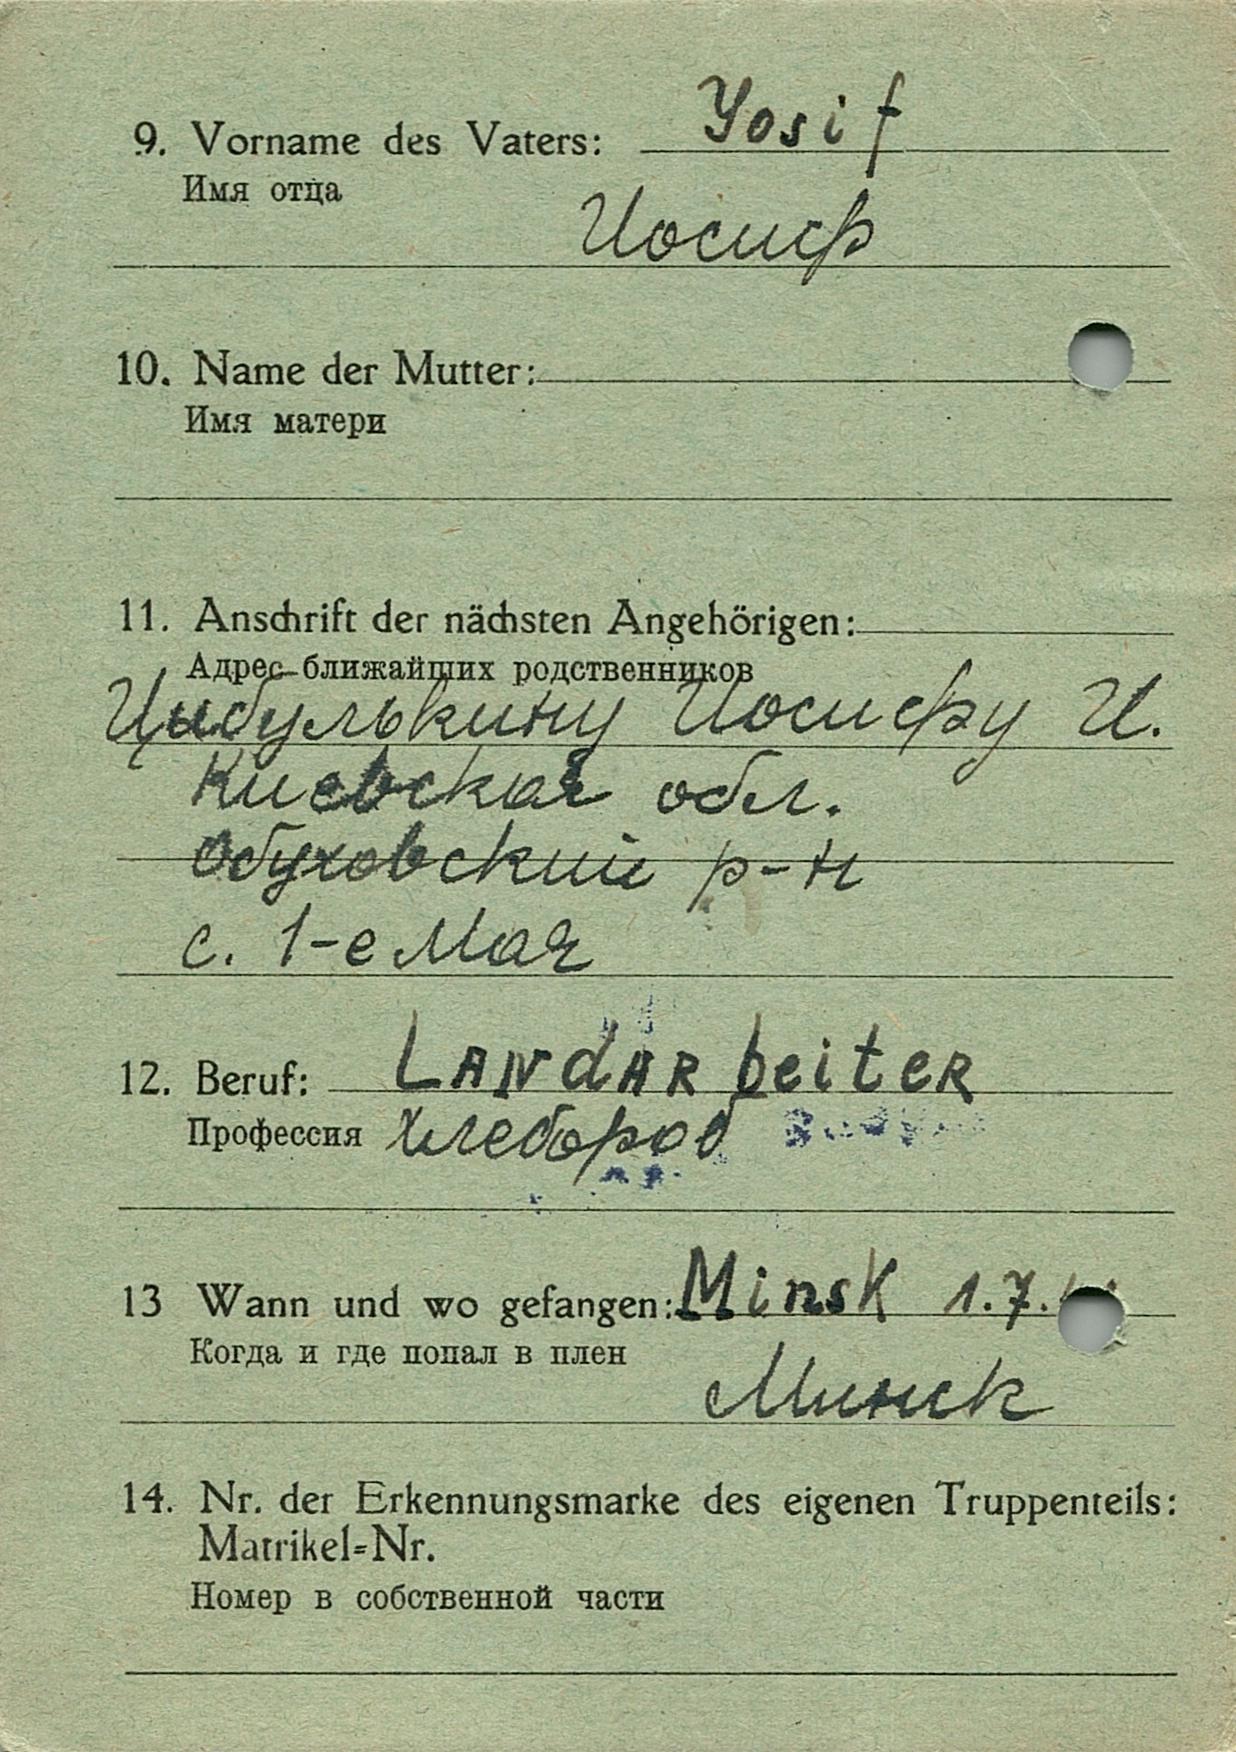 9. Vorname des Vaters: Yosif
Имя отца
Иосиф
10. Name der Mutter:
Имя матери
11. Anschrift der nächsten Angehörigen:
Адрес ближайших родственников
Цибулькину Иосифу И.
Киевская обл.
Обуховский р-н
с. 1-е Мая
12. Beruf: LANdARbeiteR
Профессия Хлебороб
13 Wann und wo gefangen: Minsk 1.7.
Когда и где попал в плен
Минск
14. Nr. der Erkennungsmarke des eigenen Truppenteils:
Matrikel-Nr.
Номер в собственной части